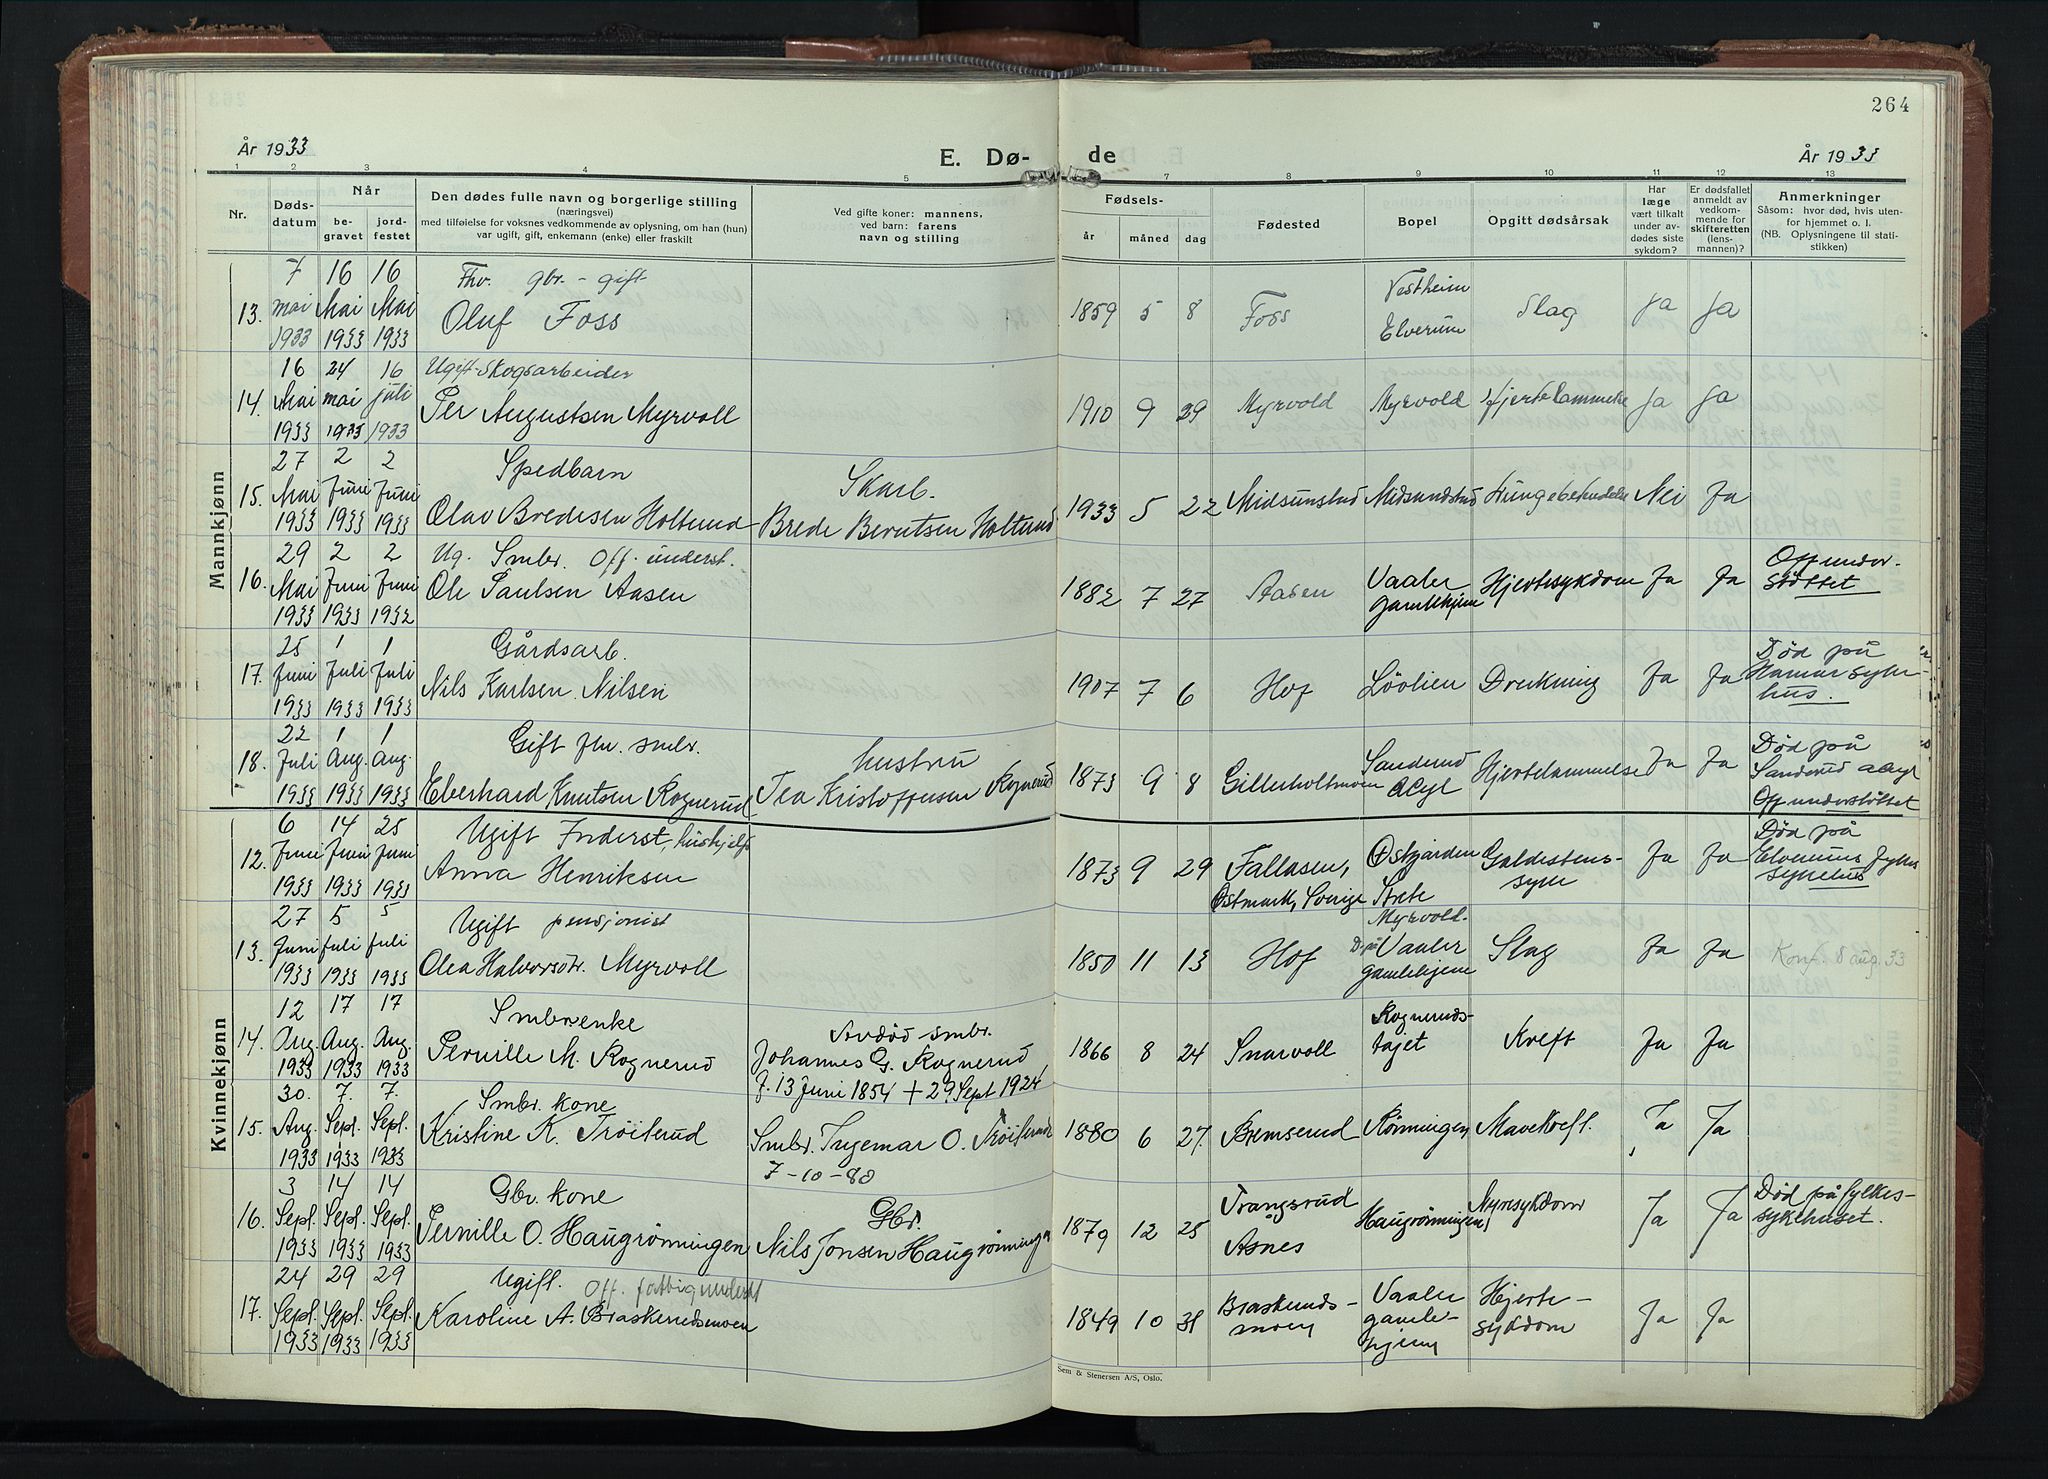 264
År 1933
E. Dø- de
År 1933
1 2 3 4 5 7 8 9 10 11 12 13
Nr.
Døds-
datum
Når
be-
gravet
jord-
festet
Den dødes fulle navn og borgerlige stilling
(næringsvei)
med tilføielse for voksnes vedkommende av oplysning, om han (hun)
var ugift, gift, enkemann (enke) eller fraskilt
Ved gifte koner: mannens,
ved barn: farens
navn og stilling
Fødsels-
år måned dag
Fødested
Bopel
Opgitt dødsårsak
Har
læge
vært tilkalt
under av-
dødes siste
sykdom?
Er dødsfallet
anmeldt av
vedkom-
mende for
skifteretten
(lens-
mannen)?
Anmerkninger
Såsom: hvor død, hvis uten-
for hjemmet o. l.
(NB. Oplysningene til stati-
stikken)
Mannkjønn
7 16 16 Fhv. gbr. - gift
13. mai Mai Mai Oluf Foss 1859 5 8 Foss Vestheim Elverum Slag Ja Ja
1933 1933 1933
16 24 16 Ugift Skogsarbeider
14. Mai mai juli Per Augustsen Myrvoll 1910 9 29 Myrvold Myrvold Hjertelammelse Ja Ja
1933 1933 1933
27 2 2 Spedbarn Skarb.
15. Mai Juni Juni Olav Bredesen Holtund Brede Berntsen Holtund 1933 5 22 Midsunstad Midsundstad Nei Ja
1933 1933 1933
29 2 2 Ug. Smbr. Off. underst.
16. Mai Juni Juni Ole Paulsen Aasen 1882 7 27 Aasen Vaaler Gamlehjem Hjertesykdom Ja Ja Off under-
støttet
1933 1933 1932
25 1 1 Gårdsarb.
17. Juni Juli Juli Nils Karlsen Nilsen 1907 7 6 Hof Løvlien Drukning Ja Ja Død på
Hamar syke-
hus.
1933 1933 1933
22 1 1 Gift fhv. smbr. hustru
18. Juli Aug. Aug. Eberhard Knutsen Rognerud Tea Kristoffersen Rognerud 1873 9 8 Gillerholtmoen Sanderud Asyl Hjertelammelse Ja Ja Død på
Sanderud asyl
Off understøttet
1933 1933 1933
Kvinnekjønn
6 14 25 Ugift Inderst, hushjelp
12. Juni Juni Juni Anna Henriksen 1873 9 29 Fallåsen, Østmark, Sverige Østgården Galdestens-
syke Ja Ja Død på
Elverums Fylkes
sykehus
1933 1933 1933
27 5 5 Ugift pensjonist
13. Juni juli juli Olea Halvorsdtr. Myrvoll 1850 11 13 Hof Myrvold. Vaaler gamlehjem Slag Ja Ja Konf. 8 aug. 33
1933 1933 1933
12 17 17 Smbrenke Avdød smbr.
14. Aug. Aug. Aug. Pernille M. Rognerud Johannes G. Rognerud 1866 8 24 Snarvoll Rogneruds-
Kreft Ja Ja
1933 1933 1933 f. 13 Juni 1854 + 29 Sept 1924
30. 7. 7. Smbr. kone
15. Aug. Sept. Sept. Kristine K. Trøiterud Smbr. Ingemar O. Trøiterud 1880 6 27. Bremserud Rønningen Mavekreft. Ja Ja
1933 1933 1933 7-10-80
3 14 14 Gbr. kone Gbr.
16. Sept. Sept. Sept. Pernille O. Haugrønningen Nils Jonsen Haugrønningen 1879 12 25 Vrangsrud Åsnes Haugrønningen Nyresykdom Ja Ja Død på fylkes-
sykehuset.
1933 1933 1933
24 29 29 Ugift. Off. fattigunderst
17. Sept. Sept. Sept. Karoline A. Braskerudsmoen 1849 10 31 Braskeruds-
moen Vaaler gamle-
hjem Hjerte-
sykdom Ja Ja
1933 1933 1933
Sem & Stenersen A/S, Oslo.